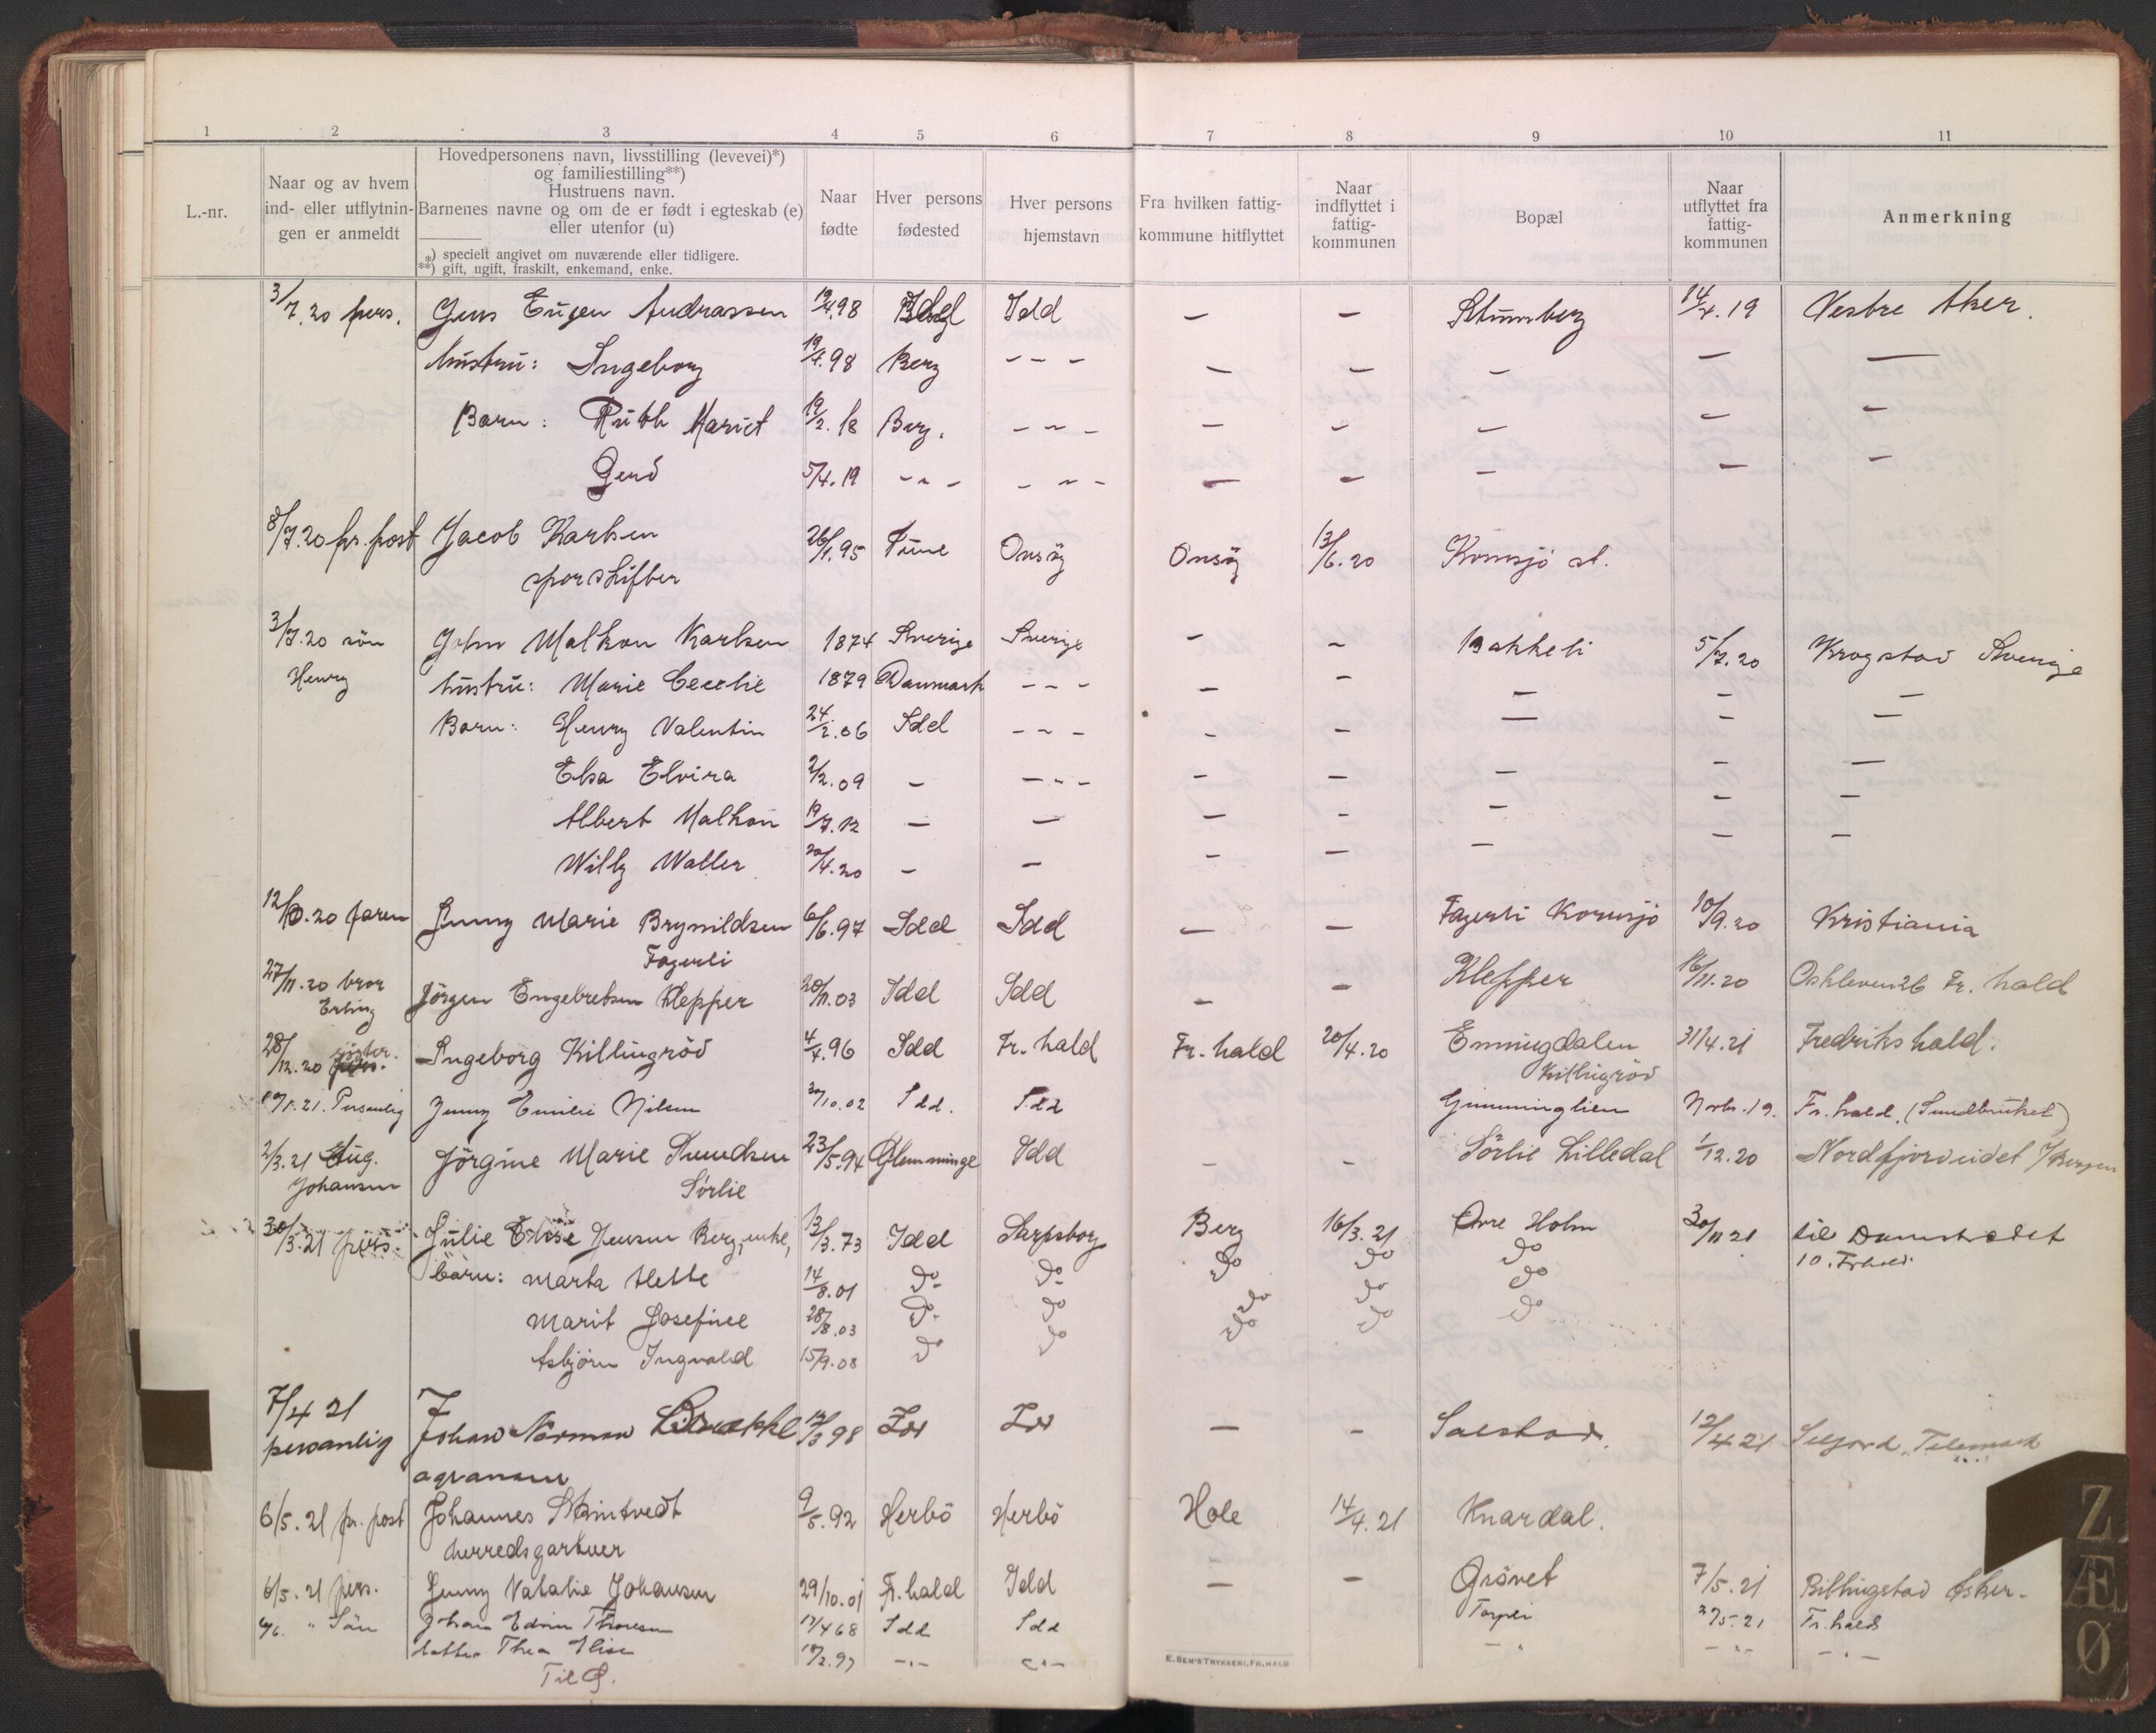 1 2 3 4 5 6 7 8 9 10 11
L.-nr.
Naar og av hvem
ind- eller utflytnin-
gen er anmeldt
Hovedpersonens navn, livsstilling (levevei)*)
og familiestilling**)
Hustruens navn.
Barnenes navne og om de er født i egteskab (e)
eller utenfor (u)
*) specielt angivet om nuværende eller tidligere.
**) gift, ugift, fraskilt, enkemand, enke.
Naar
fødte
Hver persons
fødested
Hver persons
hjemstavn
Fra hvilken fattig-
kommune hitflyttet
Naar
indflyttet i
fattig-
kommunen
Bopæl
Naar
utflyttet fra
fattig-
kommunen
Anmerkning
3/7.20 pers. Jens Eugen Andrassen 19/4.98 Idd — — 14/4.19 Vestre Aker.
hustru: Ingeborg 19/4.98 Berg - - - — — — — —
Barn: Ruth Mariet 19/2.18 Berg. - - - — — — — —
Gerd 5/4.19 - - - - - - — — — — —
8/7.20 pr. post Jacob Karlsen 26/1.95 Tune Onsøy Onsøy 13/6.20 Kornsjø st.
sporskifter
3/7.20 søn John Malkon Karlsen 1874 Sverige Sverige - - Bakkeli 5/7.20 Krogstad Sverige
Henry hustru: Marie Cecelie 1879 Danmark - - - — — — — —
Barn: Henry Valentin 24/2.06 Idd - - - — — — — —
Elsa Elvira 2/2.09 — - - - — — — — —
Albert Malkon 19/7.12 — — — - — — —
Willy Walter 20/4.20 — — - — — — —
12/10.20 faren Jenny Marie Brynildsen 6/6.97 Idd Idd — — Fagerli Kornsjø 10/9.20 Kristiania
Fagerli
27/11.20 bror Jörgen Engebretsen Klepper 20/11.03 Idd Idd — — Klepper 16/11.20 Oskleven 26 Fr. hald
Erling
28/12.20 søster. Ingeborg Killingröd 4/4.96 Idd Fr. hald Fr. hald 20/4.20 Enningdalen 31/4.21 Fredrikshald.
Killingröd
21. Personlig Jenny Emilie Nilsen 30/10.02 Idd. Idd Gimminglien Novbr. 19. Fr. hald. (Sundbruket)
2/3.21 Aug. Jörgine Marie 23/5.94 Glemminge Idd - - Sörlie Lilledal 1/12.20 Nordfjordeidet
Johansen Sörlie
30/3.21 pers. Julie Elise Jensen Berg, enke, 13/3.73 Idd Sarpsborg Berg 16/3.21 Øvre Holm 30/11 21 til Damstrædet
10. Frhald.
barn: Marta Hette 14/8.01 Do Do Do Do Do
Marit Josefine 28/8.03 Do Do Do Do Do
Asbjörn Ingvald 15/9.08 Do Do Do Do Do
7/4 21
personlig Johan Norman 98 Idd Idd — - 12/4 21 Seljord, Telemark
agronom
6/5.21 pr. post Johannes 9/5.92 Herbö Herbö Hole 14/4.21 Knardal.
herredsgartner
6/5.21 pers. Jenny Natalie Johansen 29/10.01 Fr. hald Idd — - Grönet 7/5.21 Billingstad Asker.
" Sön Johan Edvin Thoresen 17/4 68 Idd Idd Torpli 27/5.21 Fr. hald
datter Thea Elise 18/2.97 -"- -"- -"- -"- -"-
Til G.
E. SEM'S TRYKKERI, FR.HALD
Z
Æ
Ø